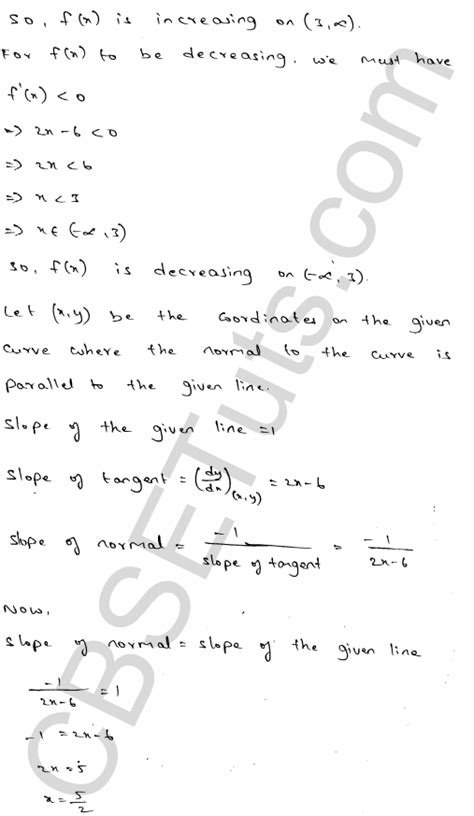 So, f(x) is increasing on (3,∞).
For f(x) to be decreasing, we must have
f'(x) < 0
=> 2x-6 < 0
=> 2x < 6
=> x < 3
=> x ∈ (-∞, 3)
So, f(x) is decreasing on (-∞, 3).
Let (x,y) be the coordinates on the given
curve where the normal to the curve is
parallel to the given line.
Slope of the given line = 1
Slope of tangent = (dy/dx)(x,y) = 2x-6
Slope of normal = -1/slope of tangent = -1/2x-6
Now,
Slope of normal = slope of the given line
-1/2x-6 = 1
-1 = 2x-6
2x = 5
x = 5/2
CBSETuts.com